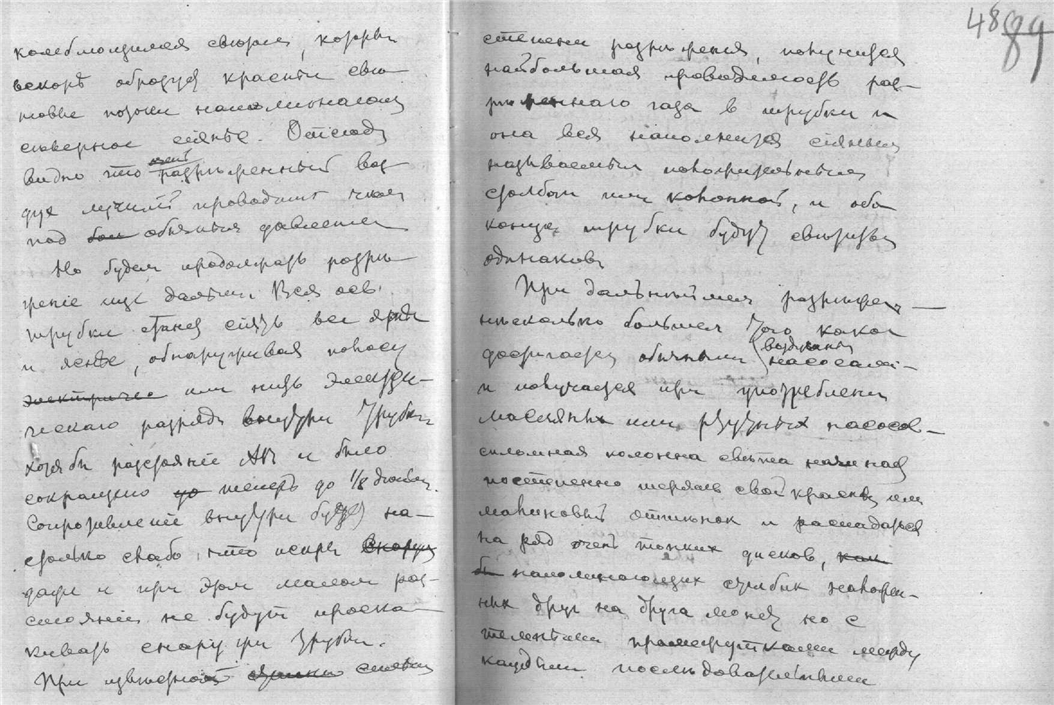 колеблющимся свѣтомъ, которы
вскорѣ образуя красныя свѣ
товые полосы напоминающ
сѣверное сіянье. Отсюда
видно что разрѣженный воз
духъ лучшій проводникъ чѣмъ
под обычным давленіем
Но будем продолжать разрѣ
женіе еще далѣе. Вся ось
трубки станет сіять все ярче
и яснѣе, обнаруживая полосу
электричес или нить электри-
ческаго разряда внутри трубки
хотя бы разстояніе АВ и было
сокращено до теперь до 1/8 дюйма.
Сопротивленіе внутри будет на-
столько слабо, что искры вскорѣ
даже и при этом малом раз-
стояніи не будут проска-
кивать снаружи трубки.
При извѣстной степени
48 89
степени разрѣженія, получится
наибольшая проводимость раз-
рѣженнаго газа в трубки и
она вся наполнится сіяньем
называемым положительным
столбом или колонной, и оба
конца трубки будут свѣтиться
одинаково
При дальнѣйшем разрѣжен—
нѣсколько большем того какое
достигается обычными воздушными
насосами-
и получается при употреблени
масляных или ртутных насосов—
сплошная колонна свѣта начинает
постепенно терять свой красный или
малиновый оттѣнок и распадаться
на ряд очень тонких дисков, как
бы напоминающих столбик положен-
ных друг на друга монет но с
темными промежутками между
каждыми послѣдовательными